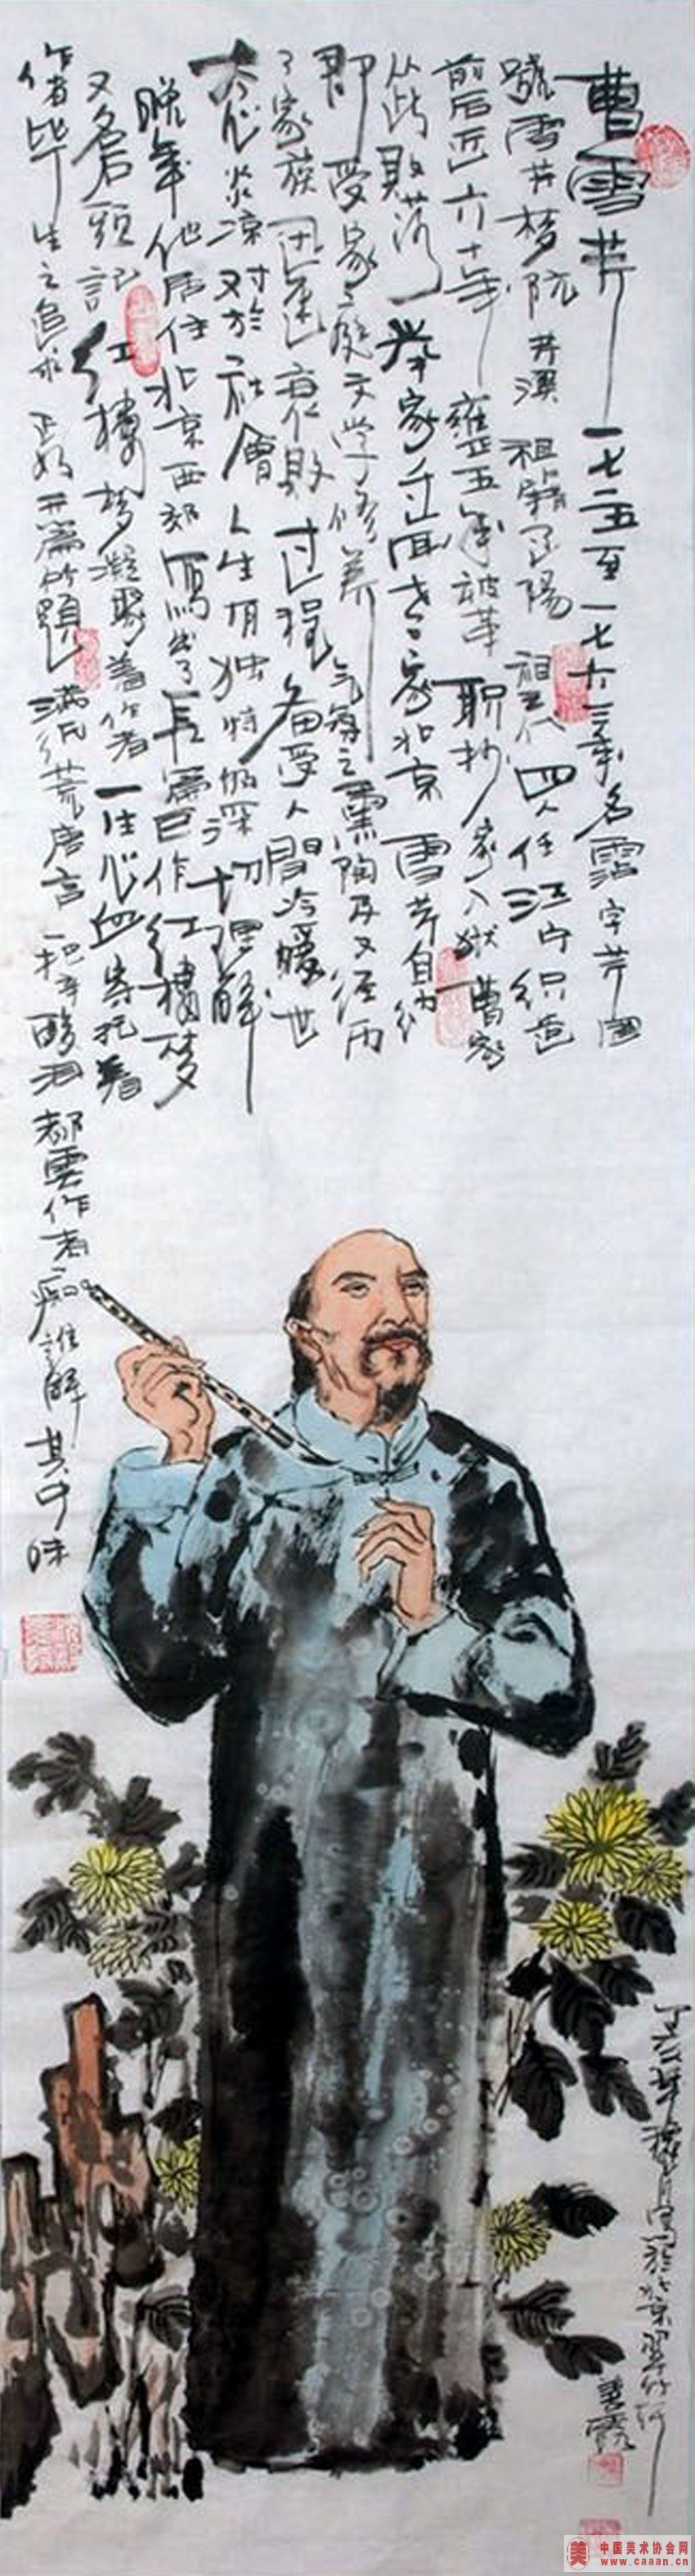 曹雪芹 一七一五至一七六三年 名霑 字芹圃
號雪芹 梦阮 芹溪 祖籍辽陽 祖三代四人任江宁织造
前后近六十年 雍正五年被革职抄家入狱 曹家
从此败落 举家迁回老家北京 雪芹自幼
即受家庭文学修养 气氛之熏陶及又经历
了家族迅速衰败过程 备受人間冷暖世
太炎凉 对於社會人生有独特 深切理解
晚年他居住北京西郊 寫出了長篇巨作红樓梦
又名石頭記 红樓梦凝聚着作者一生心血 寄托着
作者毕生之追求 正如开篇所题 满纸荒唐言 一把辛酸泪 都雲作者痴 誰解其中味
丁亥年 月寫於北京翠竹轩
中国美术协会网
www.caaan.cn